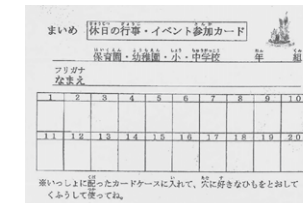 まいめ 休日の行事・イベント参加カード
保育園・幼稚園・小・中学校 年 組
フリガナ
なまえ
1 2 3 4 5 6 7 8 9 10
11 12 13 14 15 16 17 18 19 20
※いっしょに配ったカードケースに入れて、穴に好きなひもをとおして
くふうして使ってね。